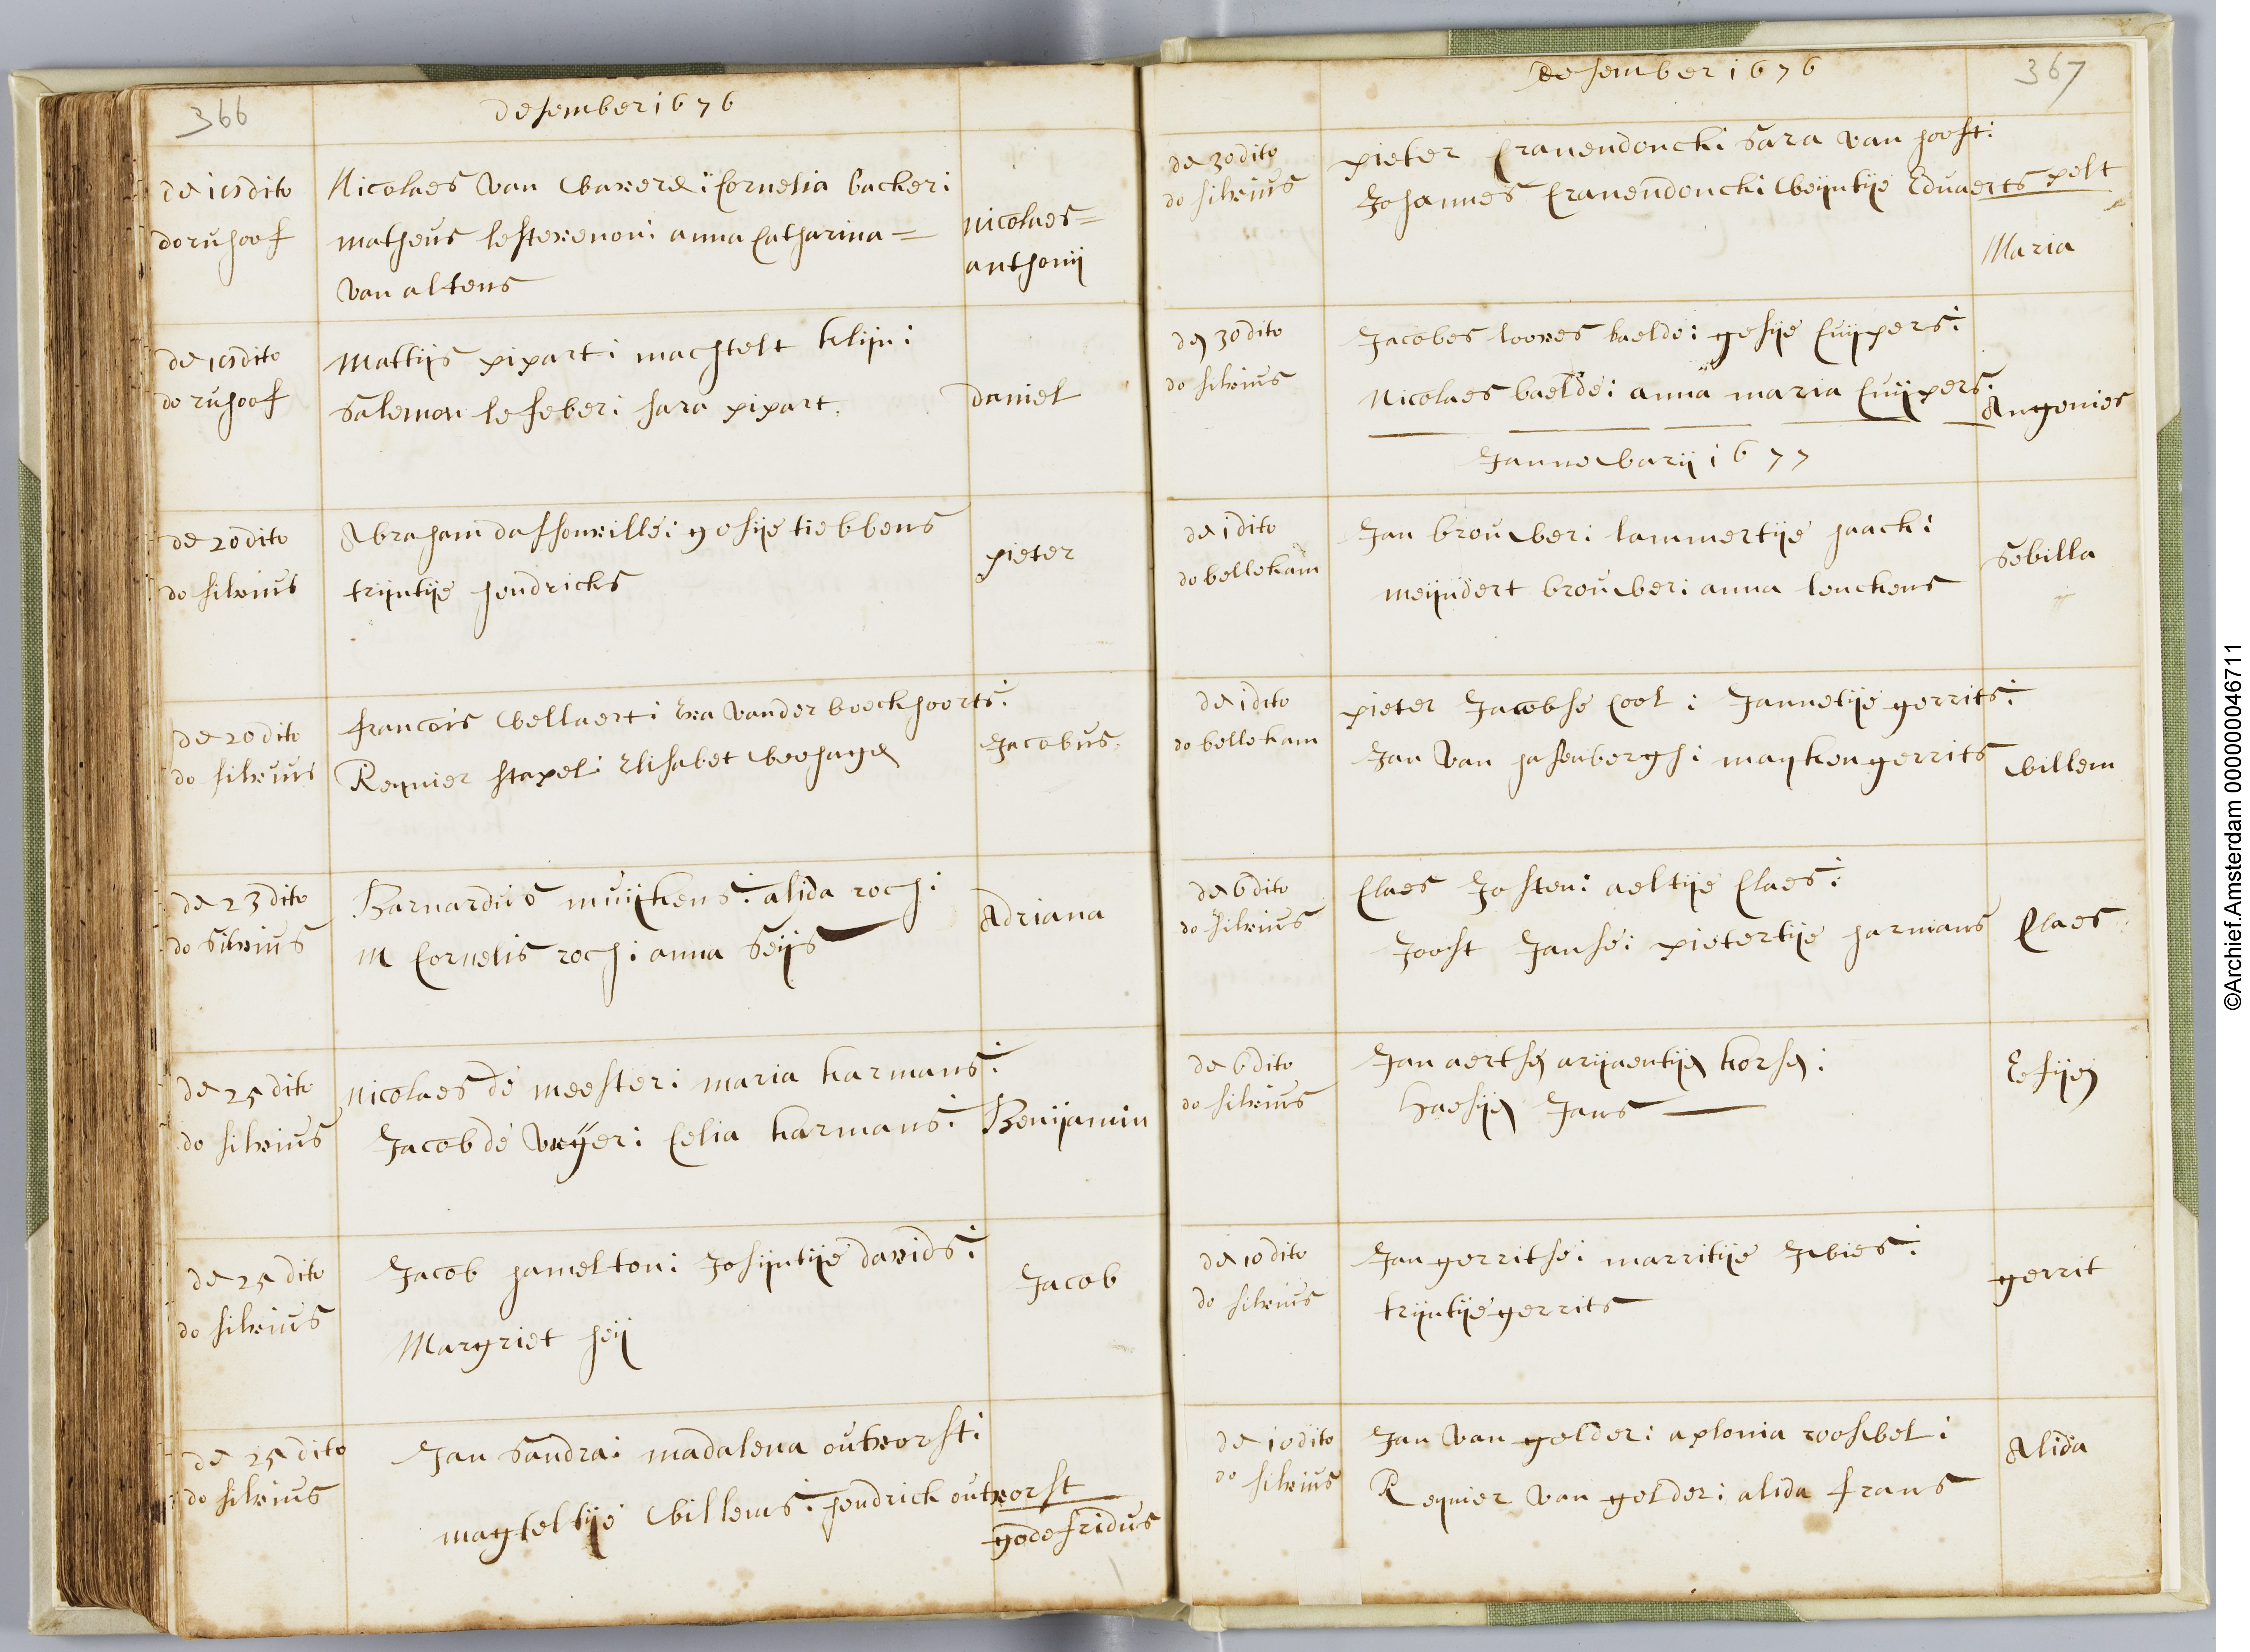 366
desember 1676
de 16 dito
do ruhoof
Nicolaes van Waverē: Cornelia backer:
matheus lestevenon: anna Catharina =
van altens
nicolaes =
anthonij
de 16 dito
do ruhoof
Mattijs pipart: machtelt klijn:
Salemon lefeber: sara pipart.
daniel
de 20 dito
do silvius
Abraham dassonville: gesije tiebbens
trijntije hendricks
pieter
de 20 dito
do silvius
francois Wellaert: Eva vander boeckhoorts:
Reynier stapel: Elisabet Weehage
Jacobus
de 23 dito
do silvius
Barnardus muijkens: alida roch:
M Cornelis roch: anna Seijs
Adriana
de 25 dito
do silvius
Nicolaes de meester: maria harmans:
Jacob de vryer: Celia harmans:
Benijamin
de 25 dito
do silvius
Jacob hamelton: Josijntije davids:
Margriet heij
Jacob
de 25 dito
do silvius
Jan Sandra: madalena outvorst:
magteltije Willems: hendrick outvorst
godefridus
desember 1676
367
de 30 dito
do silvius
pieter Cranendonck: Sara van hooft:
Johannes Cranendonck: Weijntije Eduaerts pelt
Maria
de 30 dito
do silvius
Jacobes looves baelde: gesije Cuijpers:
Nicolaes baelde: anna maria Cuijpers:
Angenies
Januewarij 1677
de 1 dito
do bellekam
Jan brouwer: lammertije haack:
meijndert brouwer: anna lenckens
Sebilla
de 1 dito
do bellekam
pieter Jacobse Cool: Jannetije gerrits:
Jan van hasenbergh: mayken gerrits
Willem
de 6 dito
do silvius
Claes Josten: aeltije Claes:
Joost Janse: pietertije harmans
Claes
de 6 dito
do silvius
Jan aertse arijaentije korse:
Haesije Jans
Eefije
de 10 dito
do silvius
Jan gerritse: marritije Iwies:
trijntije gerrits
gerrit
de 10 dito
do silvius
Jan van gelder: aplonia rooswel:
Reynier van gelder: alida frans
Alida
©Archief.Amsterdam 000000046711